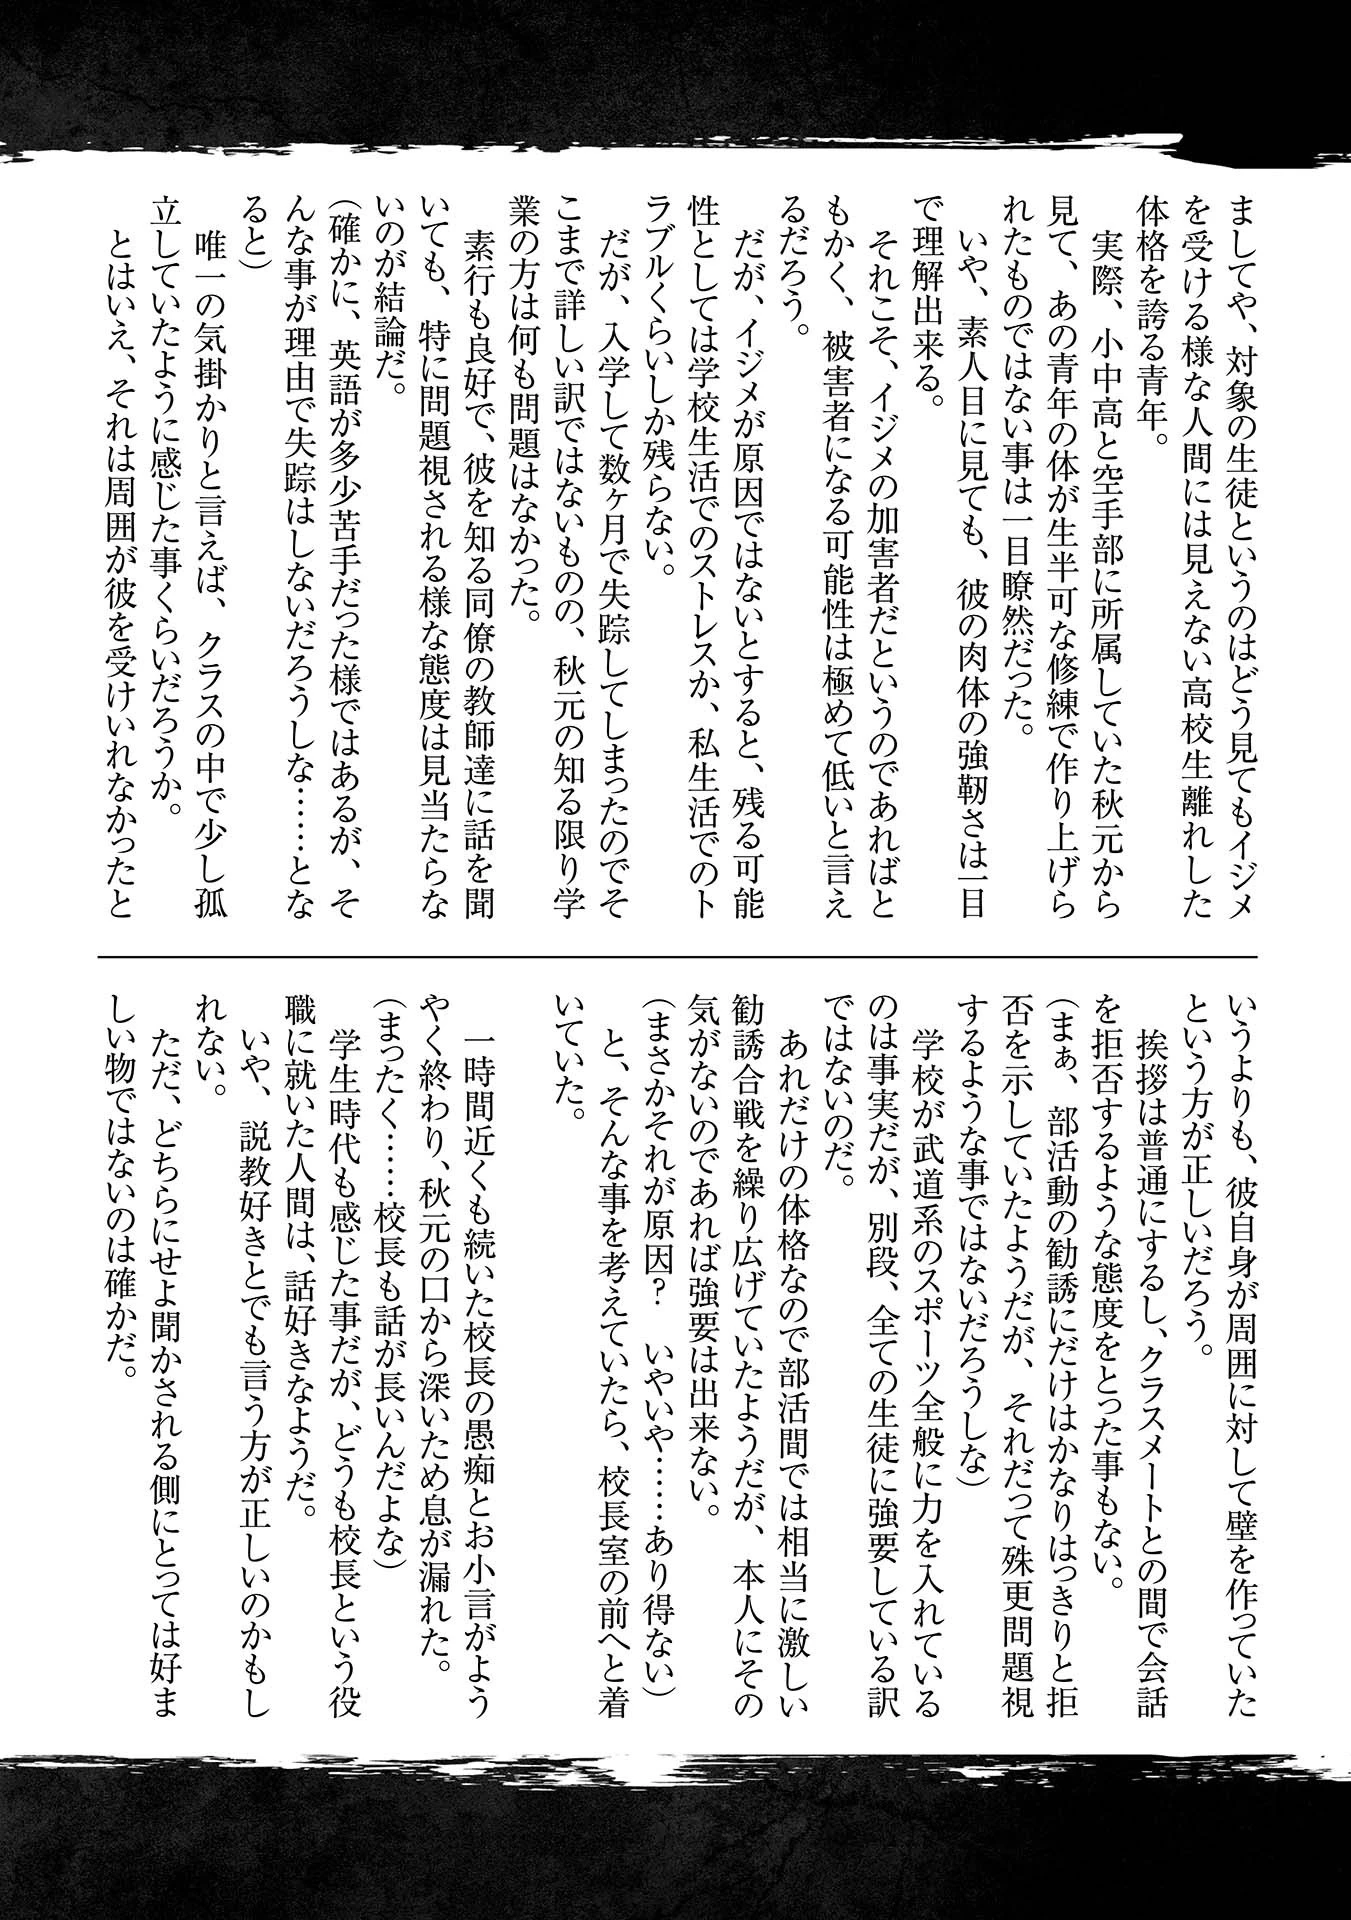 ましてや、対象の生徒というのはどう見てもイジメ
を受ける様な人間には見えない高校生離れした
体格を誇る青年。
　実際、小中高と空手部に所属していた秋元から
見て、あの青年の体が生半可な修練で作り上げら
れたものではない事は一目瞭然だった。
　いや、素人目に見ても、彼の肉体の強靭さは一目
で理解出来る。
　それこそ、イジメの加害者だというのであればと
もかく、被害者になる可能性は極めて低いと言え
るだろう。
　だが、イジメが原因ではないとすると、残る可能
性としては学校生活でのストレスか、私生活でのト
ラブルくらいしか残らない。
　だが、入学して数ヶ月で失踪してしまったのでそ
こまで詳しい訳ではないものの、秋元の知る限り学
業の方は何も問題はなかった。
　素行も良好で、彼を知る同僚の教師達に話を聞
いても、特に問題視される様な態度は見当たらな
いのが結論だ。
（確かに、英語が多少苦手だった様ではあるが、そ
んな事が理由で失踪はしないだろうしな……とな
ると）
　唯一の気掛かりと言えば、クラスの中で少し孤
立していたように感じた事くらいだろうか。
　とはいえ、それは周囲が彼を受けいれなかったと
いうよりも、彼自身が周囲に対して壁を作っていた
という方が正しいだろう。
　挨拶は普通にするし、クラスメートとの間で会話
を拒否するような態度をとった事もない。
（まぁ、部活動の勧誘にだけはかなりはっきりと拒
否を示していたようだが、それだって殊更問題視
するような事ではないだろうしな）
　学校が武道系のスポーツ全般に力を入れている
のは事実だが、別段、全ての生徒に強要している訳
ではないのだ。
　あれだけの体格なので部活間では相当に激しい
勧誘合戦を繰り広げていたようだが、本人にその
気がないのであれば強要は出来ない。
（まさかそれが原因？　いやいや……あり得ない）
　と、そんな事を考えていたら、校長室の前へと着
いていた。
　一時間近くも続いた校長の愚痴とお小言がよう
やく終わり、秋元の口から深いため息が漏れた。
（まったく……校長も話が長いんだよな）
　学生時代も感じた事だが、どうも校長という役
職に就いた人間は、話好きなようだ。
　いや、説教好きとでも言う方が正しいのかもし
れない。
　ただ、どちらにせよ聞かされる側にとっては好ま
しい物ではないのは確かだ。